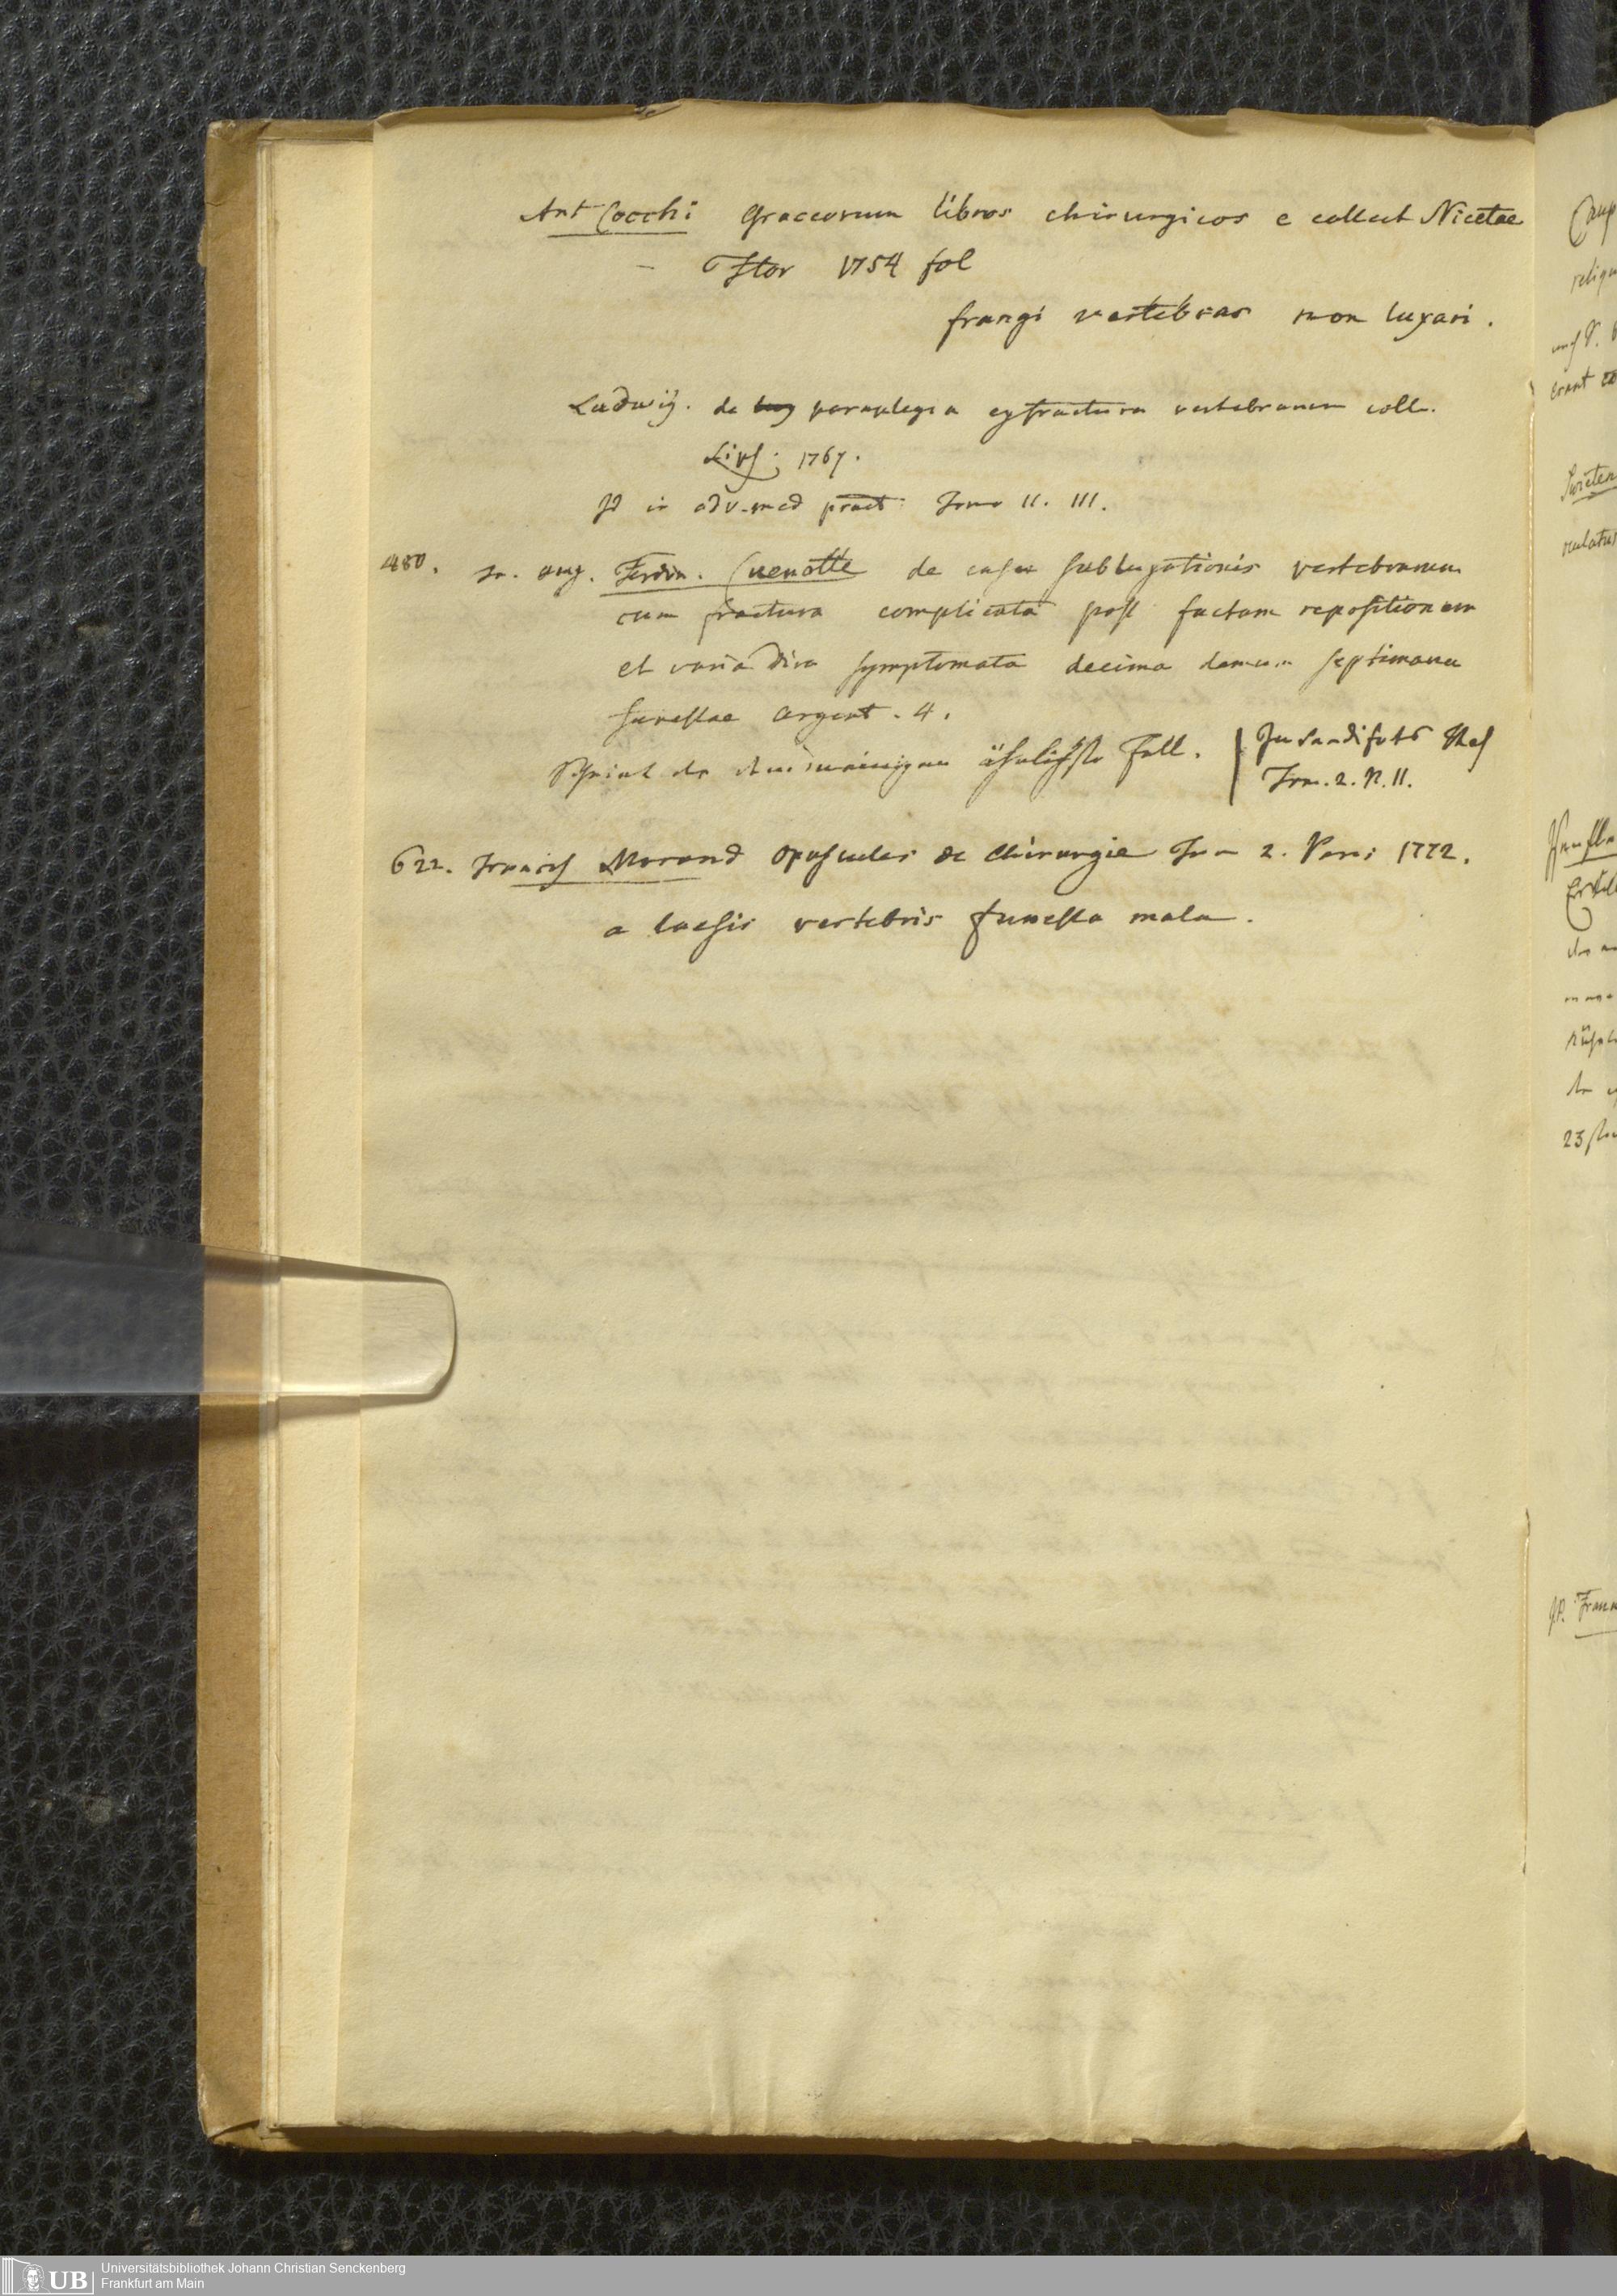 Ant Cocchi Graecorum libros chirurgicos e collect Nicetae
– Flor 1754 fol
frangi vertebras non luxari.
Ludwig. de paraplegia ex fractura vertebrarum coll.
Lips. 1767.
Id in adv. med pract. Tomo II. III.
480. Fr. aug. Ferdin. Cuenotte de casu subluxationis vertebrarum
cum fractura complicata post factam repositionem
et varia dira symptomata decima demum septimana
funestae Argent. 4.
Scheint der dem meinigen ähnlichste Fall.
In Sandiforts Thes
Tom. 2. N. 11.
622. Morand opuscules de Chirurgie Tom 2. Paris 1772.
a laesis vertebris funesta mala.
Camp
reliqu
erant
Swieten
23 sten
Fran
UB
Universitätsbibliothek Johann Christian Senckenberg
Frankfurt am Main